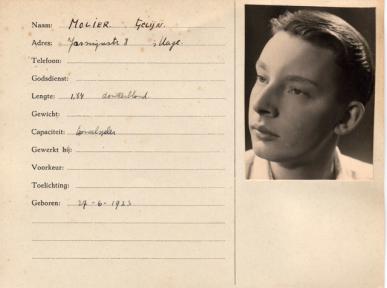 Naam: MOLIER
Adres: Jasmijnstr 8 's Hage.
Telefoon:
Godsdienst:
Lengte: 1,84 donkerblond
Gewicht:
Capaciteit:
Gewerkt bij:
Voorkeur:
Toelichting:
Geboren: 27-6-1923